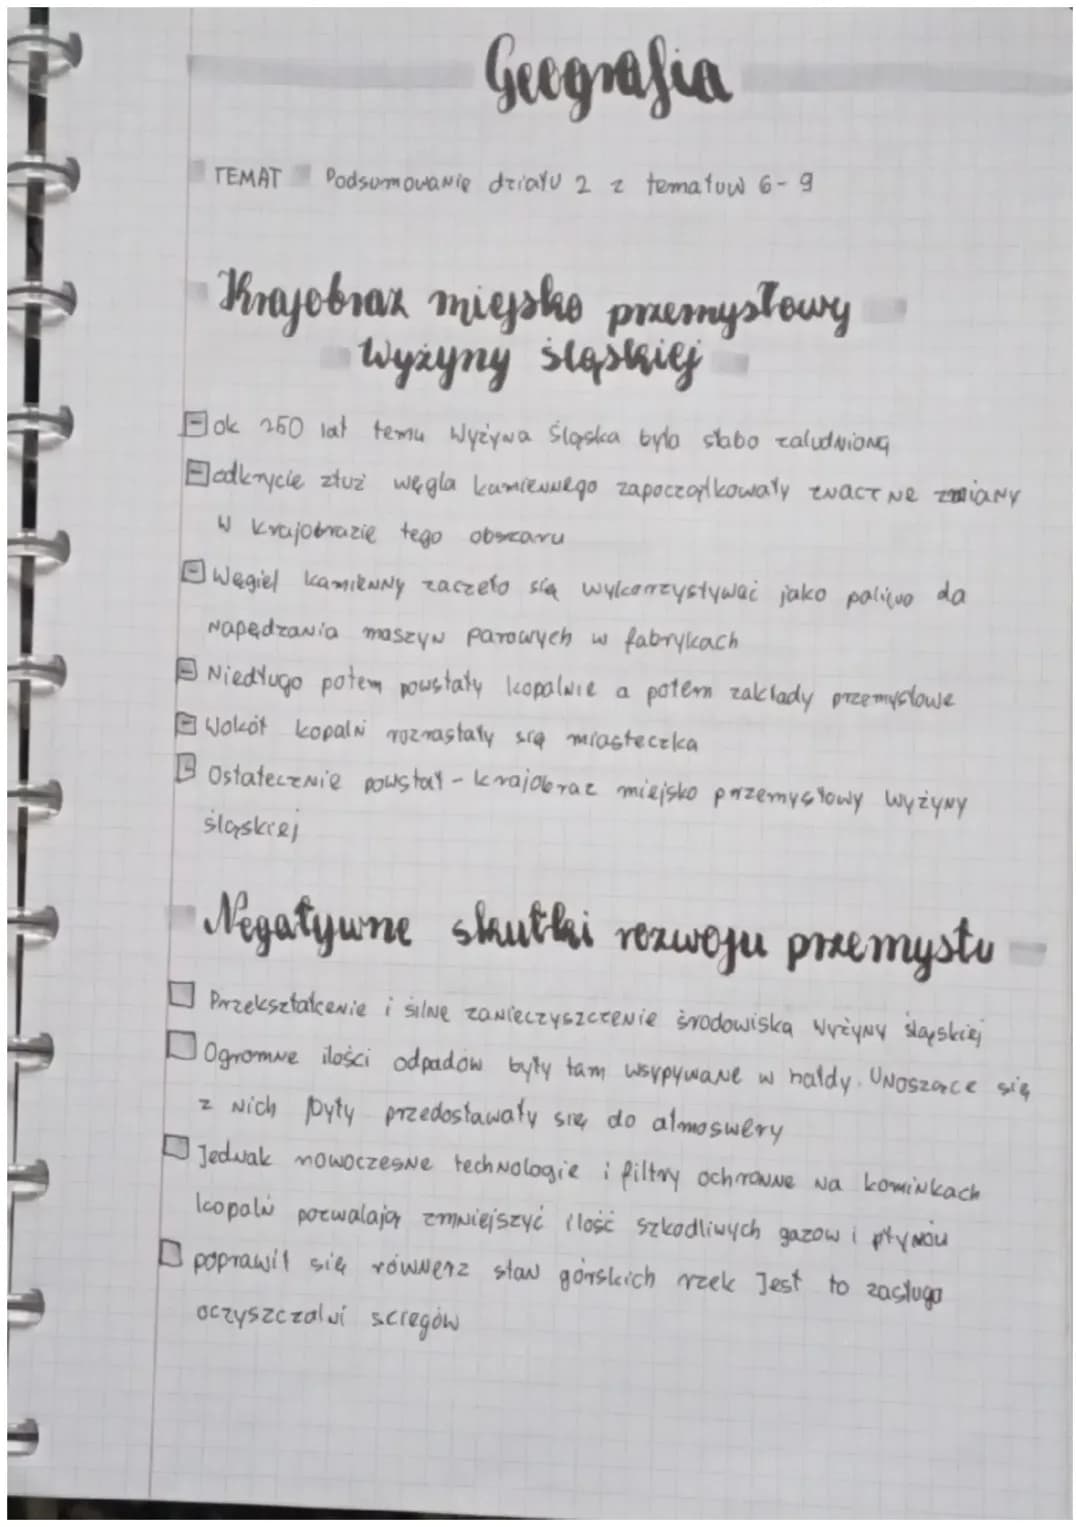 Geografia
TEMAT Podsumowanie działu 2 z tematuw 6-9
Krajobraz miejsko przemysłowy
Wyżyny śląskiej
ok 250 lat temu Wyżyna Śląska była słabo zaludniona
odkrycie złuż węgla kamiennego zapoczątkowały znaczne zmiany
w krajobrazie tego obszaru
Węgiel kamienny zaczęto się wykorzystywać jako paliwo do
napędzania maszyn parowych w fabrykach
Niedługo potem powstały kopalnie a potem zakłady przemysłowe
Wokół kopalni rozrastały się miasteczka
Ostatecznie powstał - krajobraz miejsko przemysłowy wyżyny
śląskiej
Negatywne skutki rozwoju przemysłu
Przekształcenie i silne zanieczyszczenie środowiska wyżyny śląskiej
Ogromne ilości odpadów były tam wsypywane w hałdy. Unoszące się
z nich pyły przedostawały się do atmoswery
Jednak nowoczesne technologie i filtry ochronne na kominkach
kopalń pozwalają zmniejszyć ilość szkodliwych gazow i płynów
poprawił się równierz stan górskich rzek Jest to zasługa
oczyszczalni sciegów